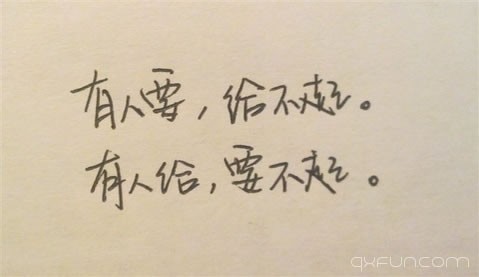 有人要，给不起。
有人给，要不起。
qxfun.com